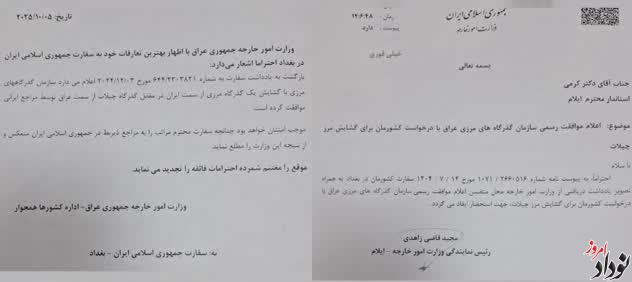 جمهوری اسلامی ایران
وزارت امور خارجه
زمان : ۱۲:۶:۴۸
پیوست : دارد
خیلی فوری
بسمه تعالی
جناب آقای دکتر کرمی
استاندار محترم ایلام
موضوع: اعلام موافقت رسمی سازمان گذرگاه های مرزی عراق با درخواست کشورمان برای گشایش مرز
چیلات
با سلام
احتراماً، به پیوست نامه شماره ۱۰۷۱/۲۶۶۰۵۱۶ مورخ ۱۴ / ۷ / ۱۴۰۴ سفارت کشورمان در بغداد به همراه
تصویر یادداشت دریافتی از وزارت امور خارجه محل متضمن اعلام موافقت رسمی سازمان گذرگاه های مرزی عراق با
درخواست کشورمان برای گشایش مرز چیلات، جهت استحضار ایفاد می گردد.
مجید قاضی زاهدی
رئیس نمایندگی وزارت امور خارجه – ایلام
تاریخ: ۲۰۲۵/۱۰/۰۵
وزارت امور خارجه جمهوری عراق با اظهار بهترین تعارفات خود به سفارت جمهوری اسلامی ایران
در بغداد احتراما اشعار می‌دارد:
بازگشت به یادداشت سفارت به شماره ۶۴۴/۲۳۰۳۸۲۱ مورخ ۲۰۲۴/۱۲/۰۳ اعلام می دارد سازمان گذرگاههای
مرزی با گشایش یک گذرگاه مرزی از سمت ایران در مقابل گذرگاه چیلات از سمت عراق توسط مراجع ایرانی
موافقت کرده است.
موجب امتنان خواهد بود چنانچه سفارت محترم مراتب را به مراجع ذیربط در جمهوری اسلامی ایران منعکس و
از نتیجه این وزارت را مطلع نماید.
موقع را مغتنم شمرده احترامات فائقه را تجدید می نماید.
وزارت امور خارجه جمهوری عراق- اداره کشورها همجوار
به: سفارت جمهوری اسلامی ایران - بغداد
نوداد امروز